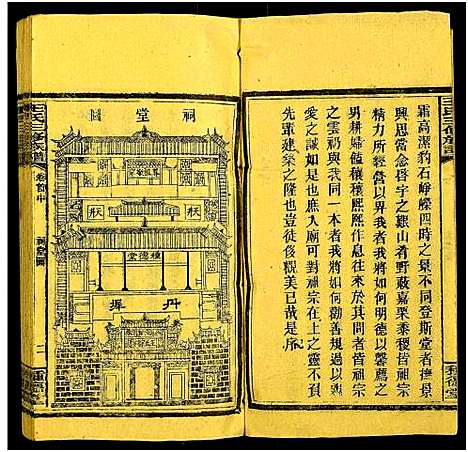 霜高潔豹石崢嶸四時之景不同登斯堂者撫景
興思常念昏字之山肴野蔌嘉栗黍稷皆祖宗
精力所經營以畀我者我將如何明德以馨薦之
男耕婦饁穰穰熙熙作息往來於其間者皆祖宗
之雲礽與我同一本者我將如何勸善規過以篤
愛之誠如是也庶入廟可對祖宗在上之靈不負
先輩建築之隆也豈徒侈觀美已哉是序
祠堂圖
種德堂
丹墀
王氏三修族譜
卷首中
祠堂圖
二
種德堂